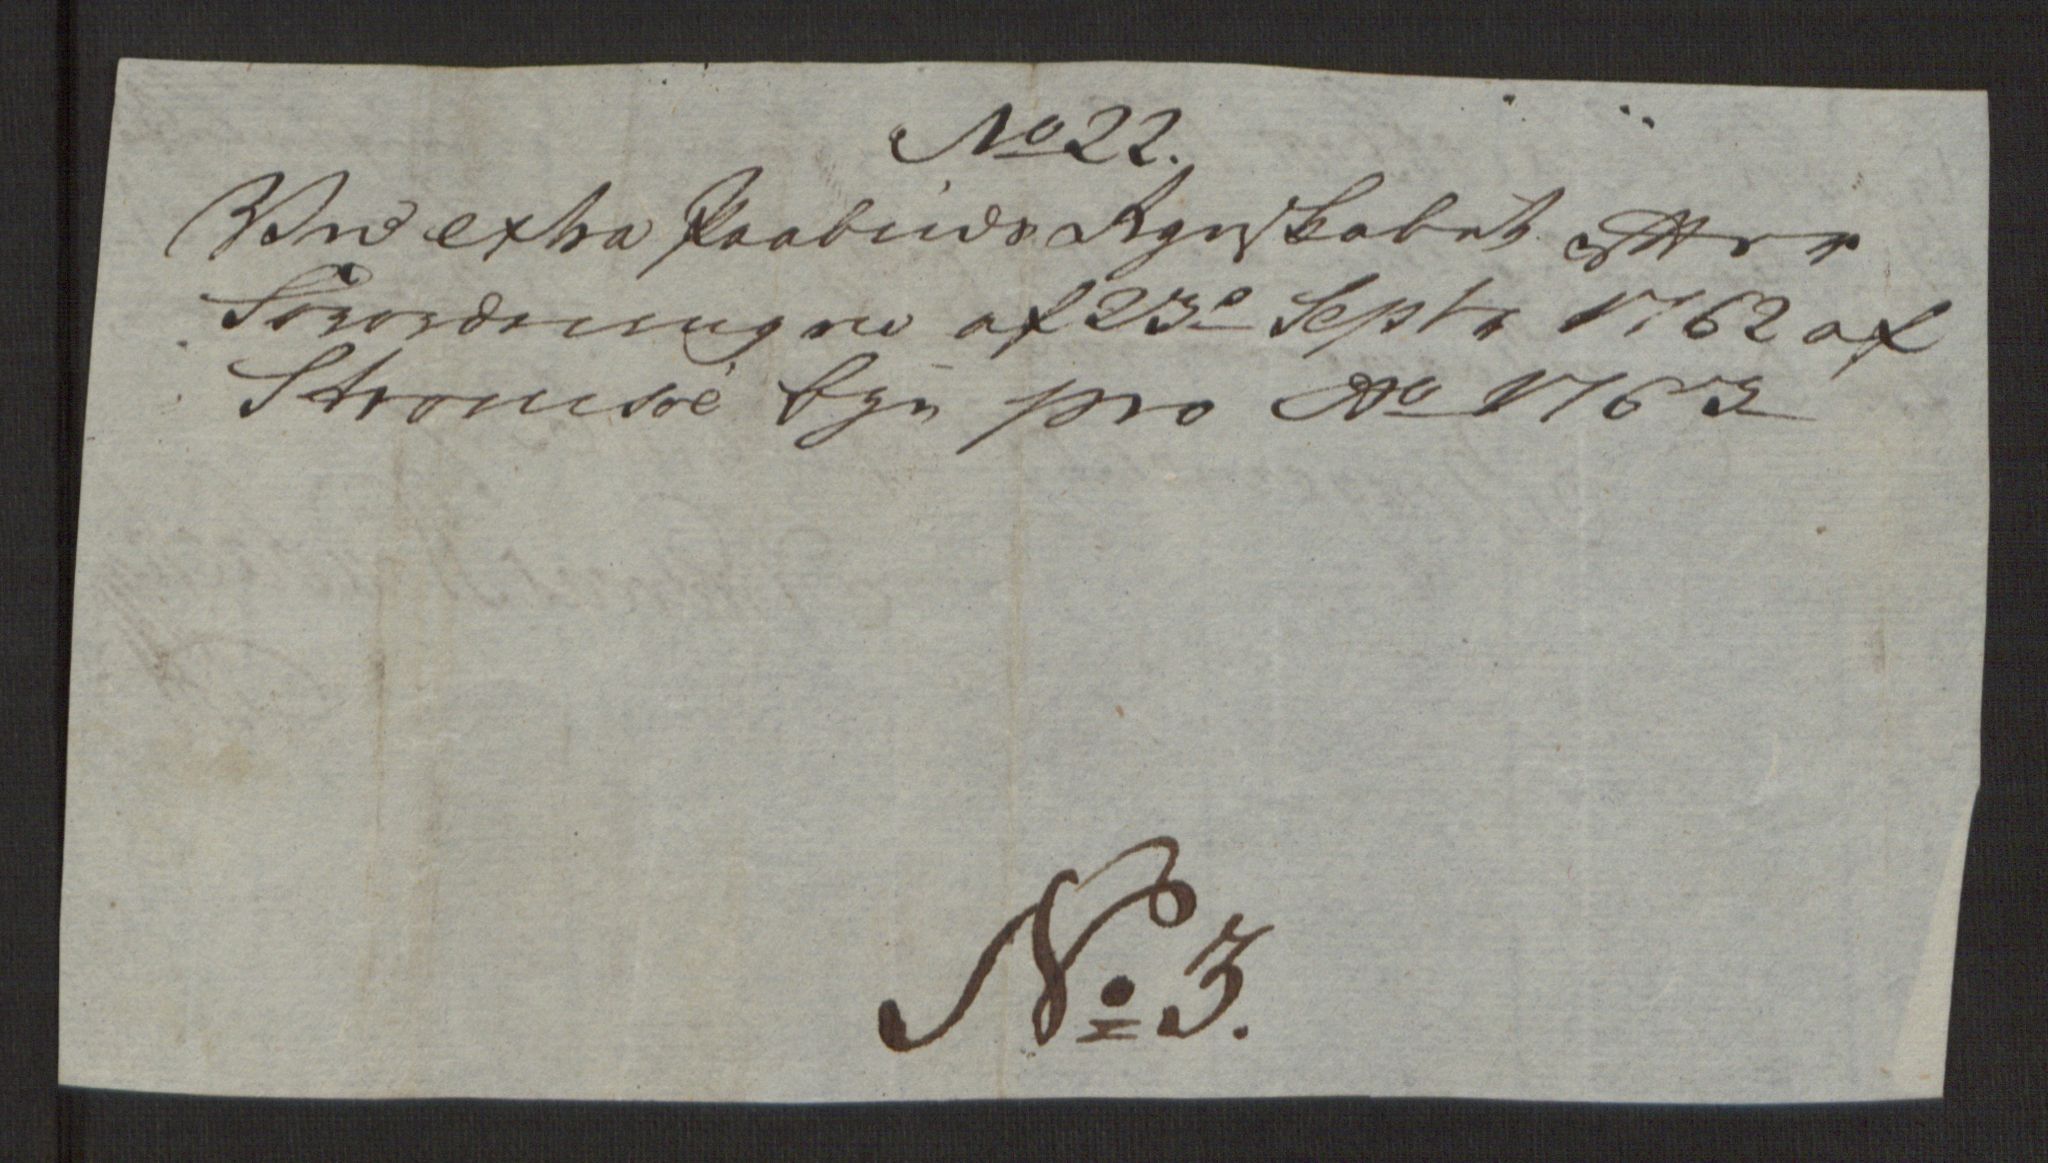 No 22.
Ved extra Paabuds Regnskabet efter
Forordningen af 23de Septr 1762 af
Stromsöe bye pro Ao 1763
No 3.